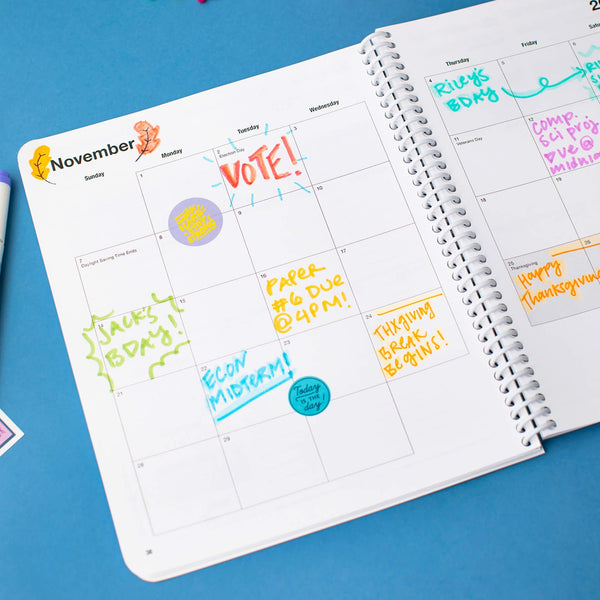 November
Sunday
Monday
Tuesday
Wednesday
Thursday
Friday
1
2
Election Day
VOTE!
3
4
RILEY'S
BDAY
5
6
7
Daylight Saving Time Ends
8
9
10
11
Veterans Day
12
COMP.
SCI PROJ
DUE @
14
JACK'S
BDAY!
15
16
PAPER
#6 DUE
@4PM!
17
18
19
21
22
ECON
MIDTERM!
23
Today
IS THE
day!
24
THXGIVING
BREAK
BEGINS!
25
Thanksgiving
HAPPY
THANKSGIVING
26
28
29
38